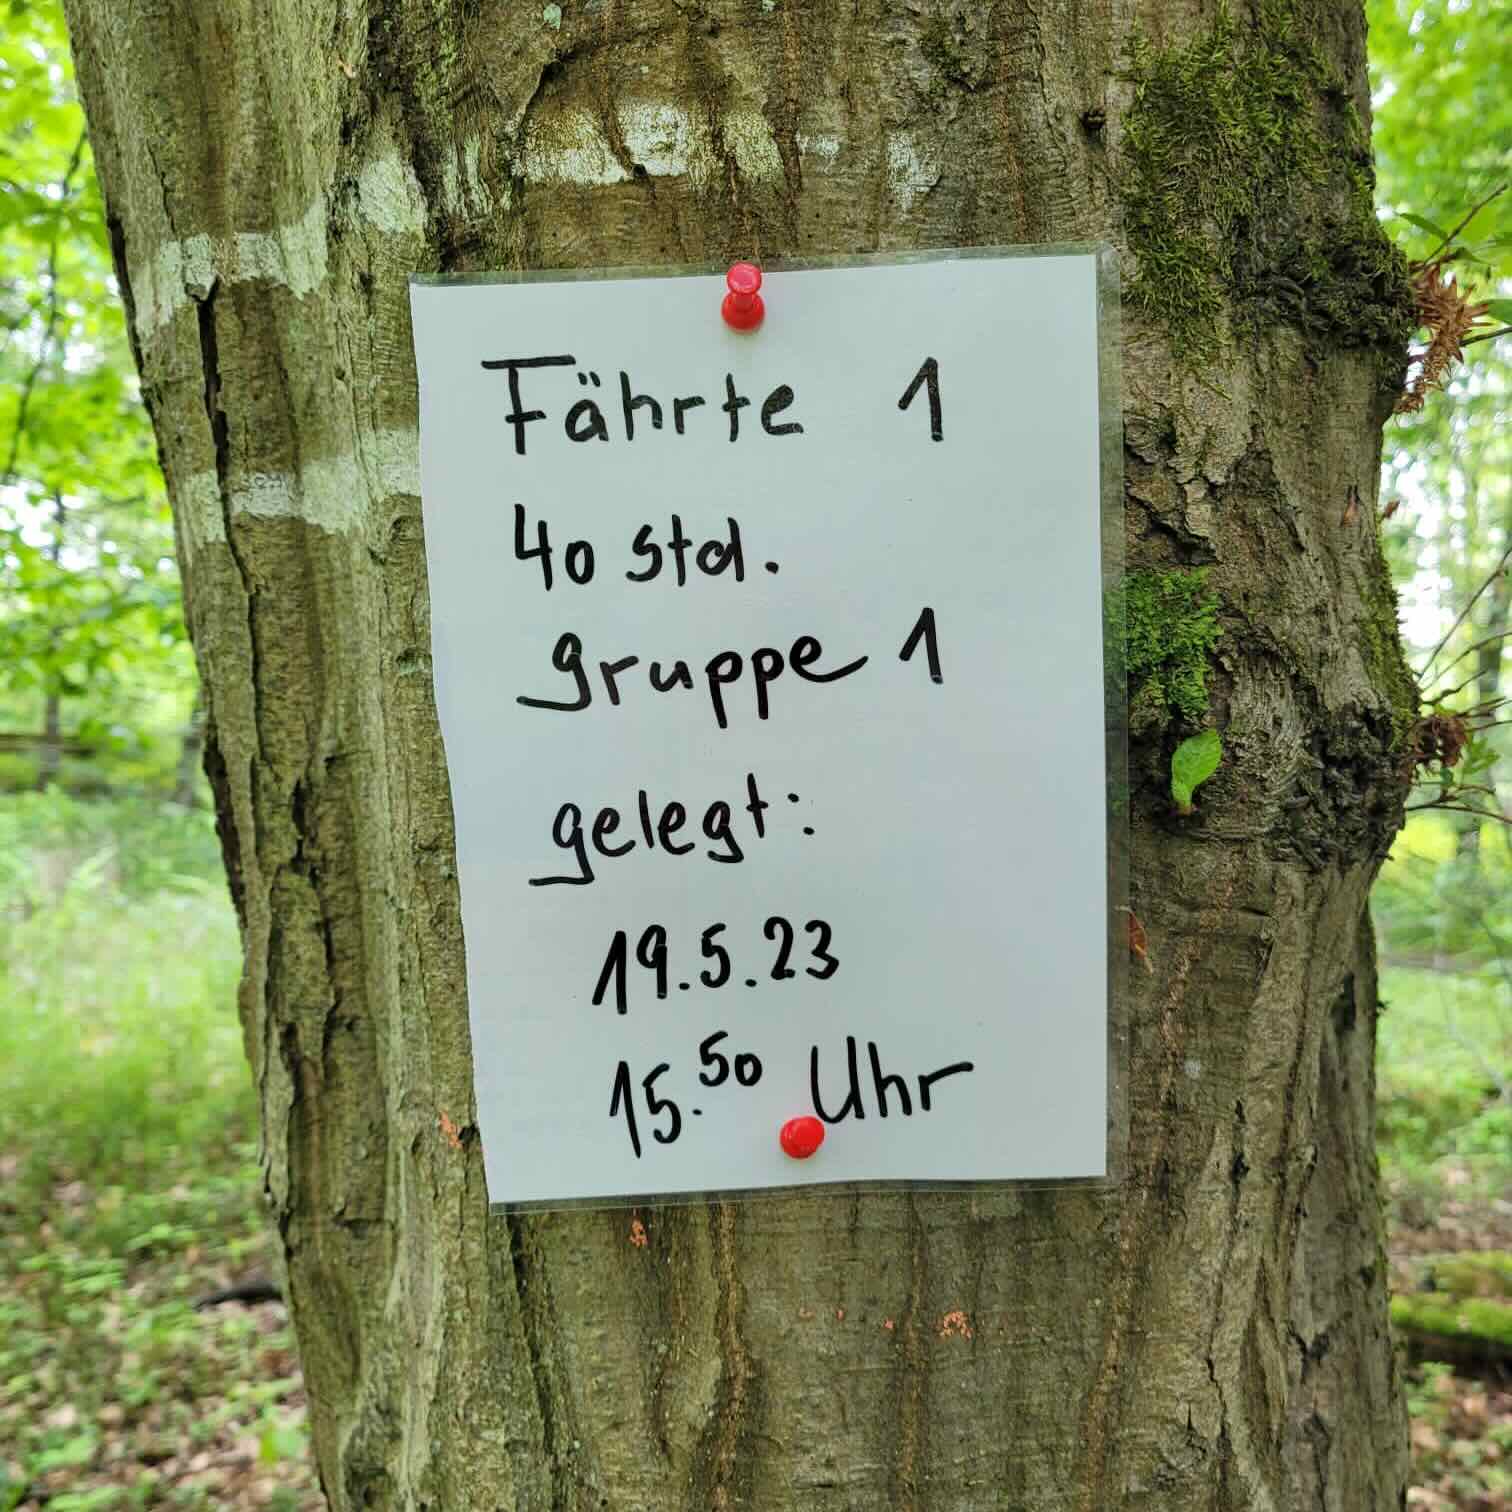 Fährte 1
40 Std.
gruppe 1
gelegt:
19.5.23
15.50 Uhr